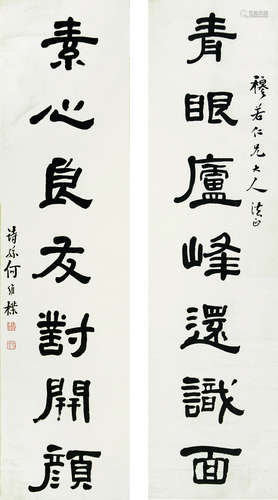 青眼廬峰還識面
穆若仁兄大人法正
素心良友對開顔
詩孫何維樸